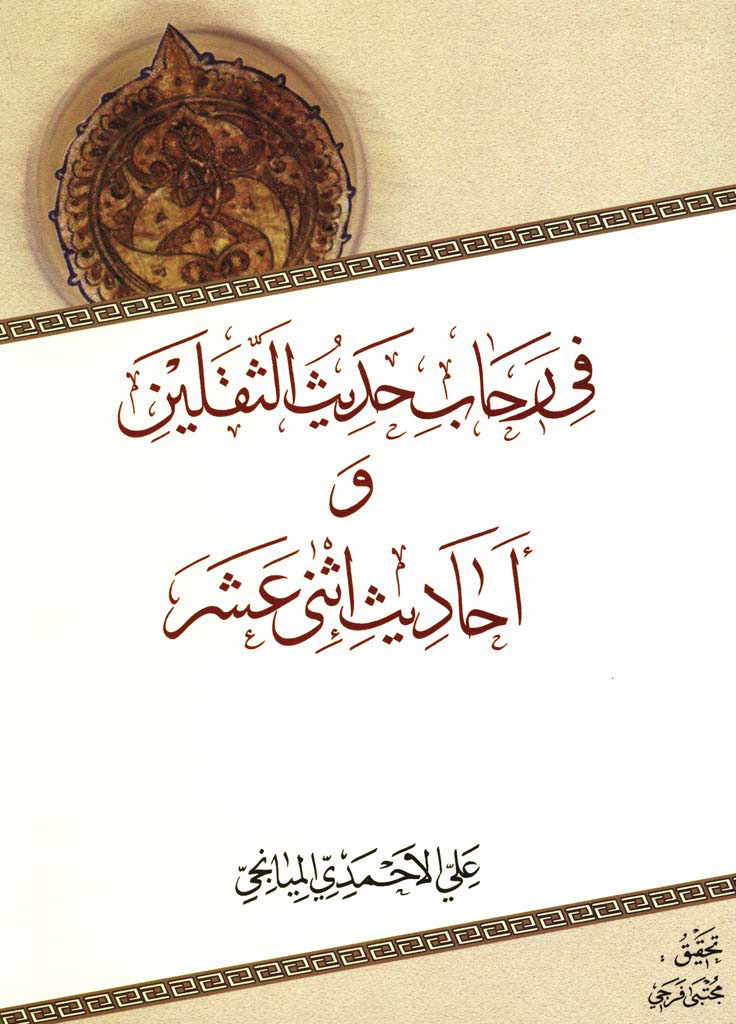 فِي رَحَابِ حَدِيثِ الثَّقَلَيْنِ
وَ
أَحَادِيثِ اثْنَى عَشَرَ
عَلِيّ الأَحْمَدِيّ المِيَانِجِيّ
تحقيقُ :
مُجْتَبىٰ فَرَجي